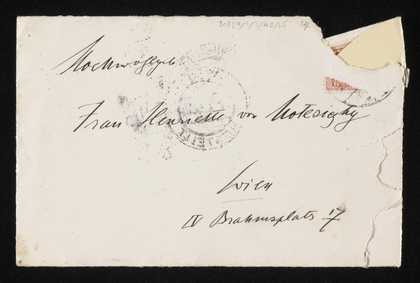 Hochwohlgeb.
Frau Henriette von Motesiczky
Wien
IV Brahmsplatz 7